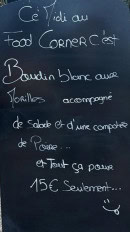 Ce Midi au
Food Corner C'est
Boudin blanc aux
Morilles accompagné
de Salade et d'une compotée
de Poire...
et Tout ça pour
15€ Seulement...